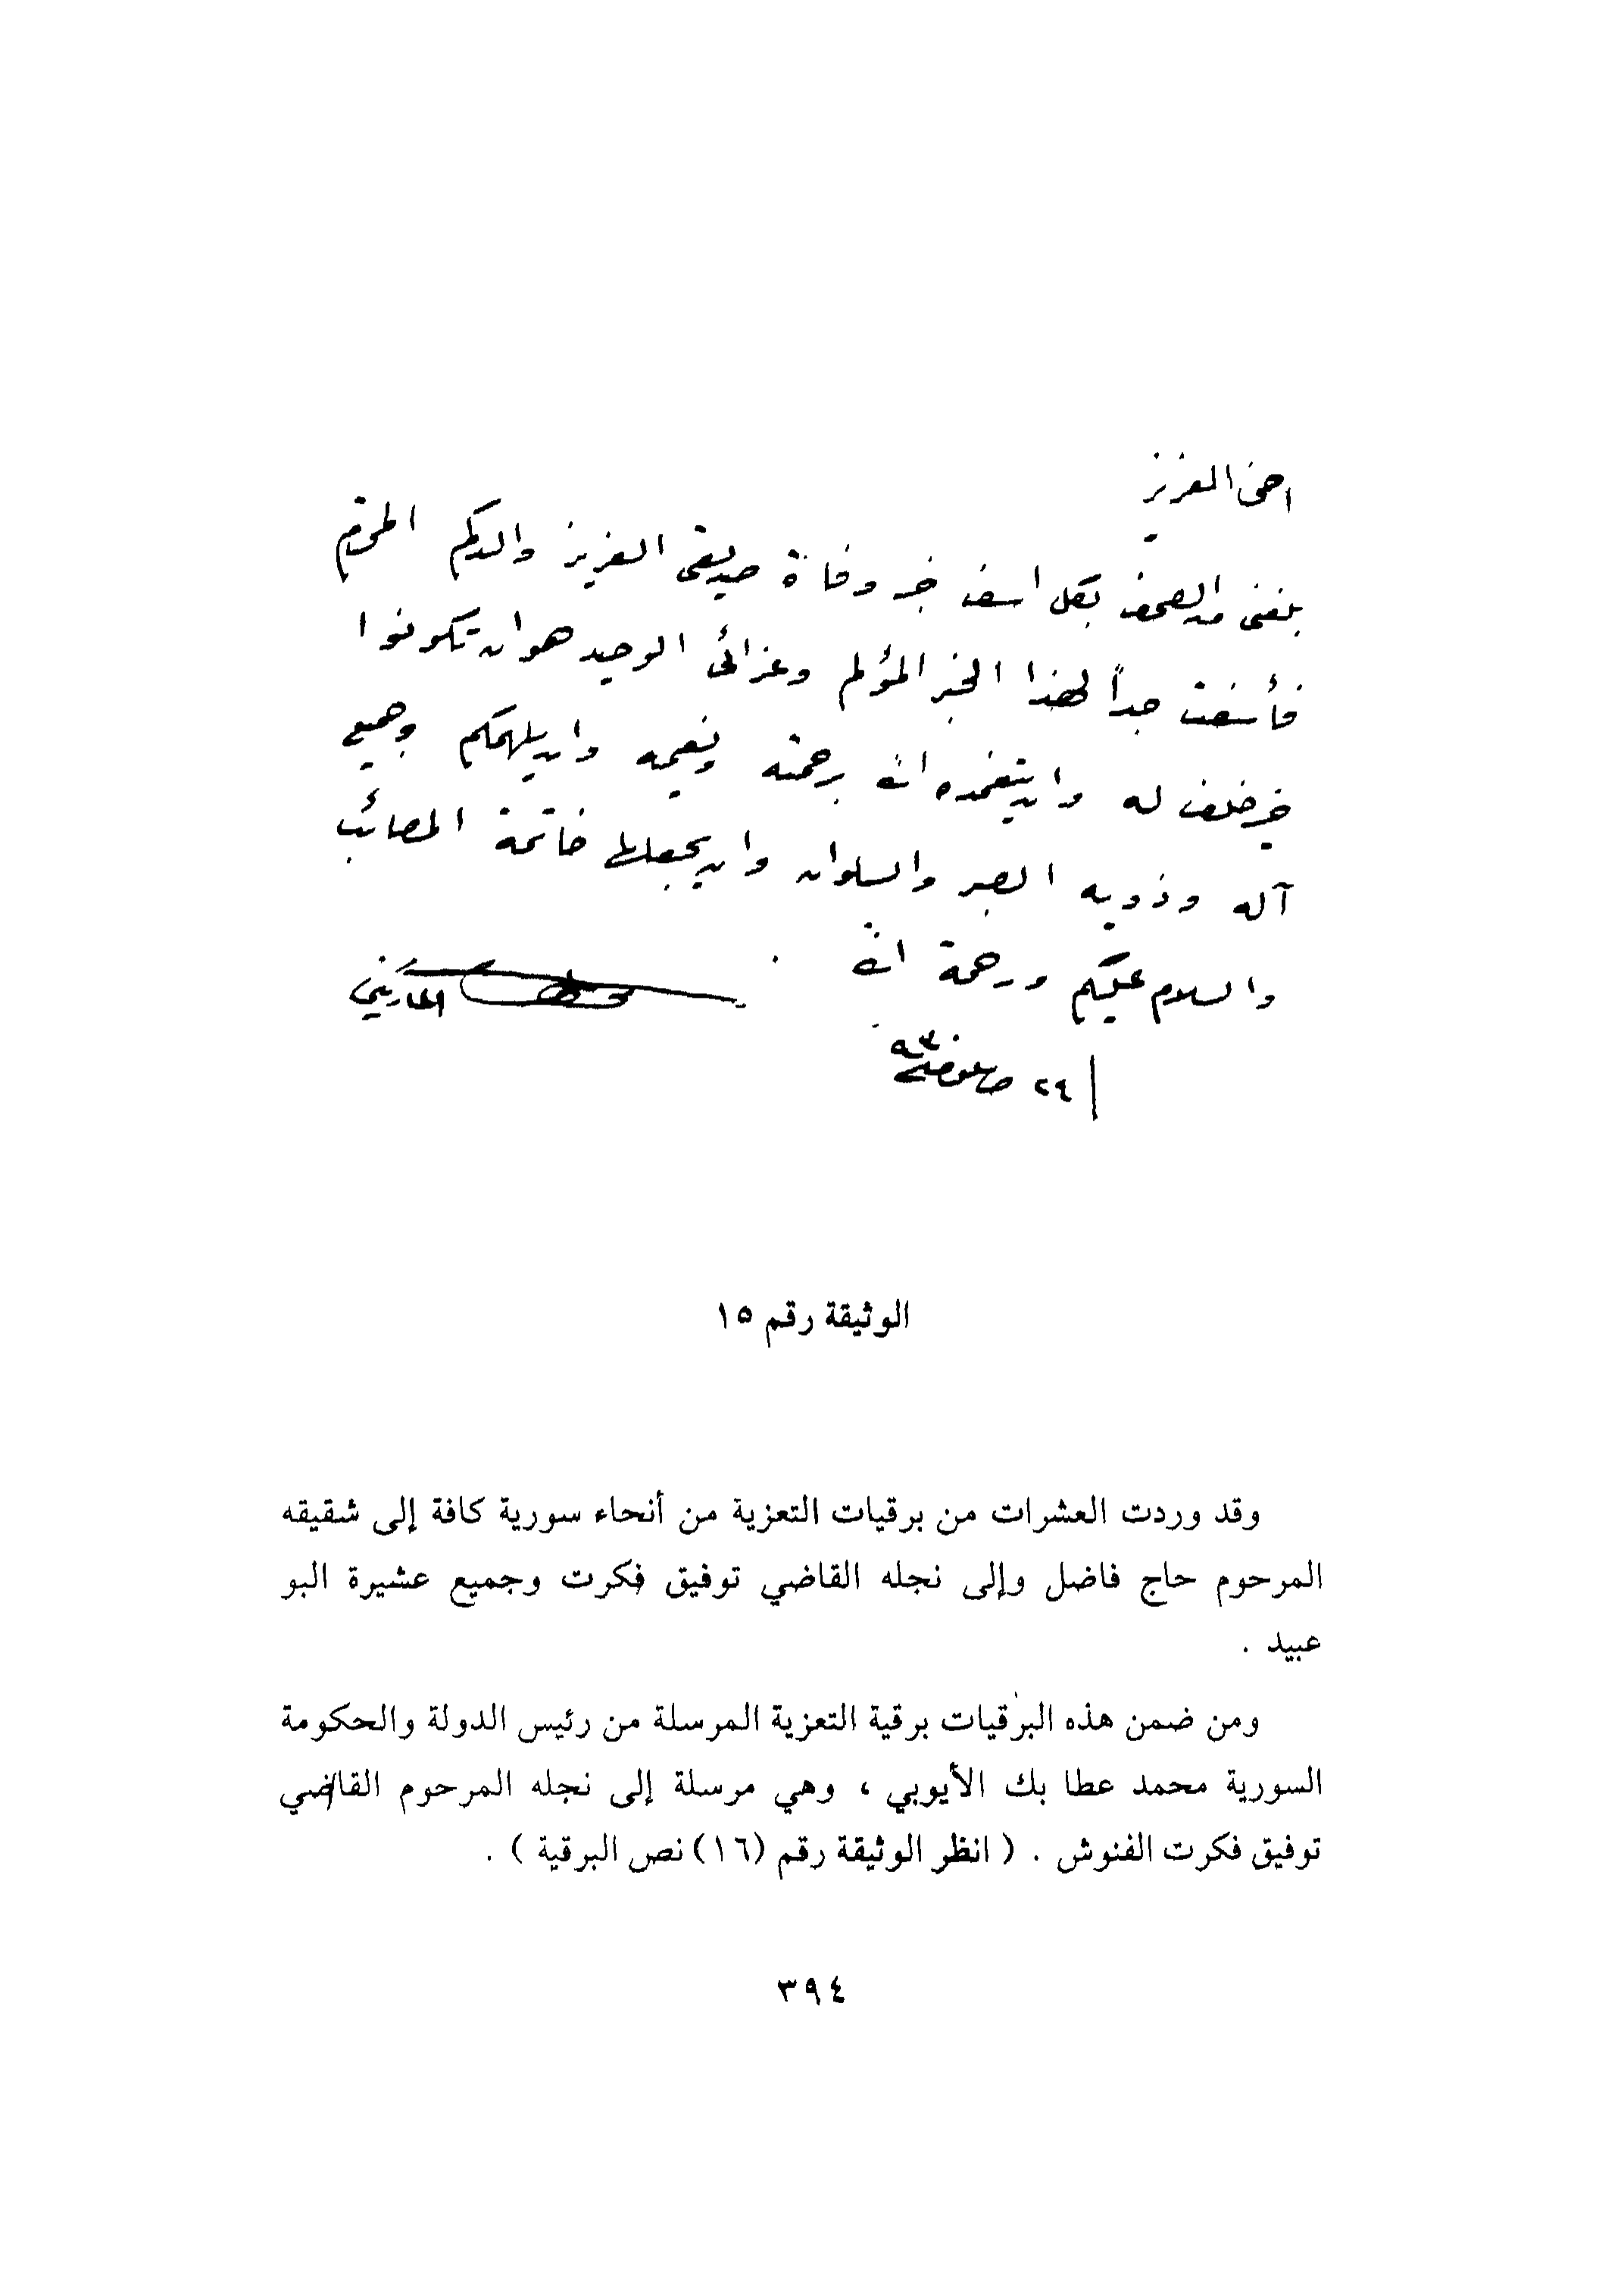 اخي العزيز
بلغني من الصحف بكل اسف خبر وفاة صديقي العزيز والدكم المحترم
فأسفت جداً لهذا الخبر المؤلم وعزائي الوحيد هو ان تكونوا
خير خلف له وان يتغمده الله برحمته ونعيمه وان يلهمكم وجميع
آله وذويه الصبر والسلوان وان يجعلها خاتمة المصائب
والسلام عليكم ورحمة الله .
٢٩
الوثيقة رقم ١٥
وقد وردت العشرات من برقيات التعزية من أنحاء سورية كافة إلى شقيقه
المرحوم حاج فاضل وإلى نجله القاضي توفيق فكرت وجميع عشيرة البو
عبيد .
ومن ضمن هذه البرقيات برقية التعزية المرسلة من رئيس الدولة والحكومة
السورية محمد عطا بك الأيوبي ، وهي مرسلة إلى نجله المرحوم القاضي
توفيق فكرت الفنوش . ( انظر الوثيقة رقم (١٦) نص البرقية ) .
٣٩٤